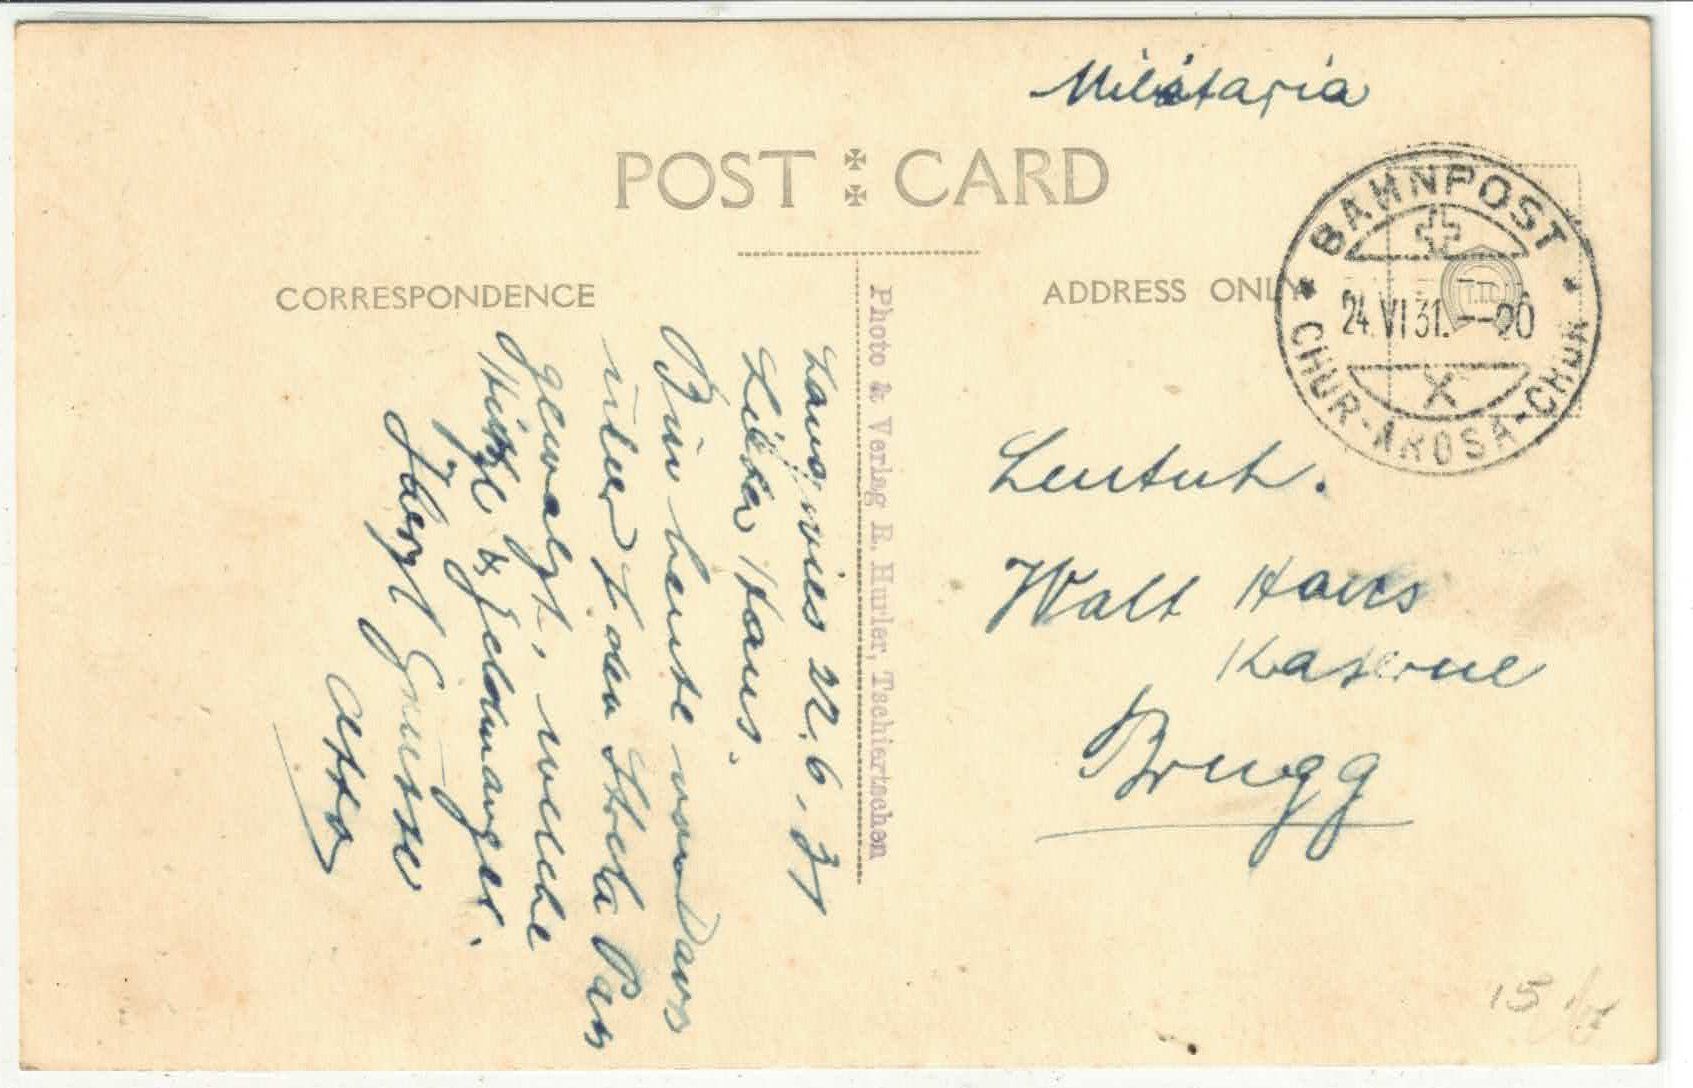 Militaria
POST CARD
CORRESPONDENCE
ADDRESS ONLY
BAHNPOST
24.VI 31.--20
X
* CHUR-AROSA-CHUR *
Photo & Verlag R. Hurler, Tschiertschen
Langwies 22.6.31
Lieber Hans.
Bin heute von Davos
über den Strela Pass
gewalzt, welche
Hitze & Geldmangel.
Herzl Grüsse
Otto
Leutnt.
Walt Hans
Kaserne
Brugg
15